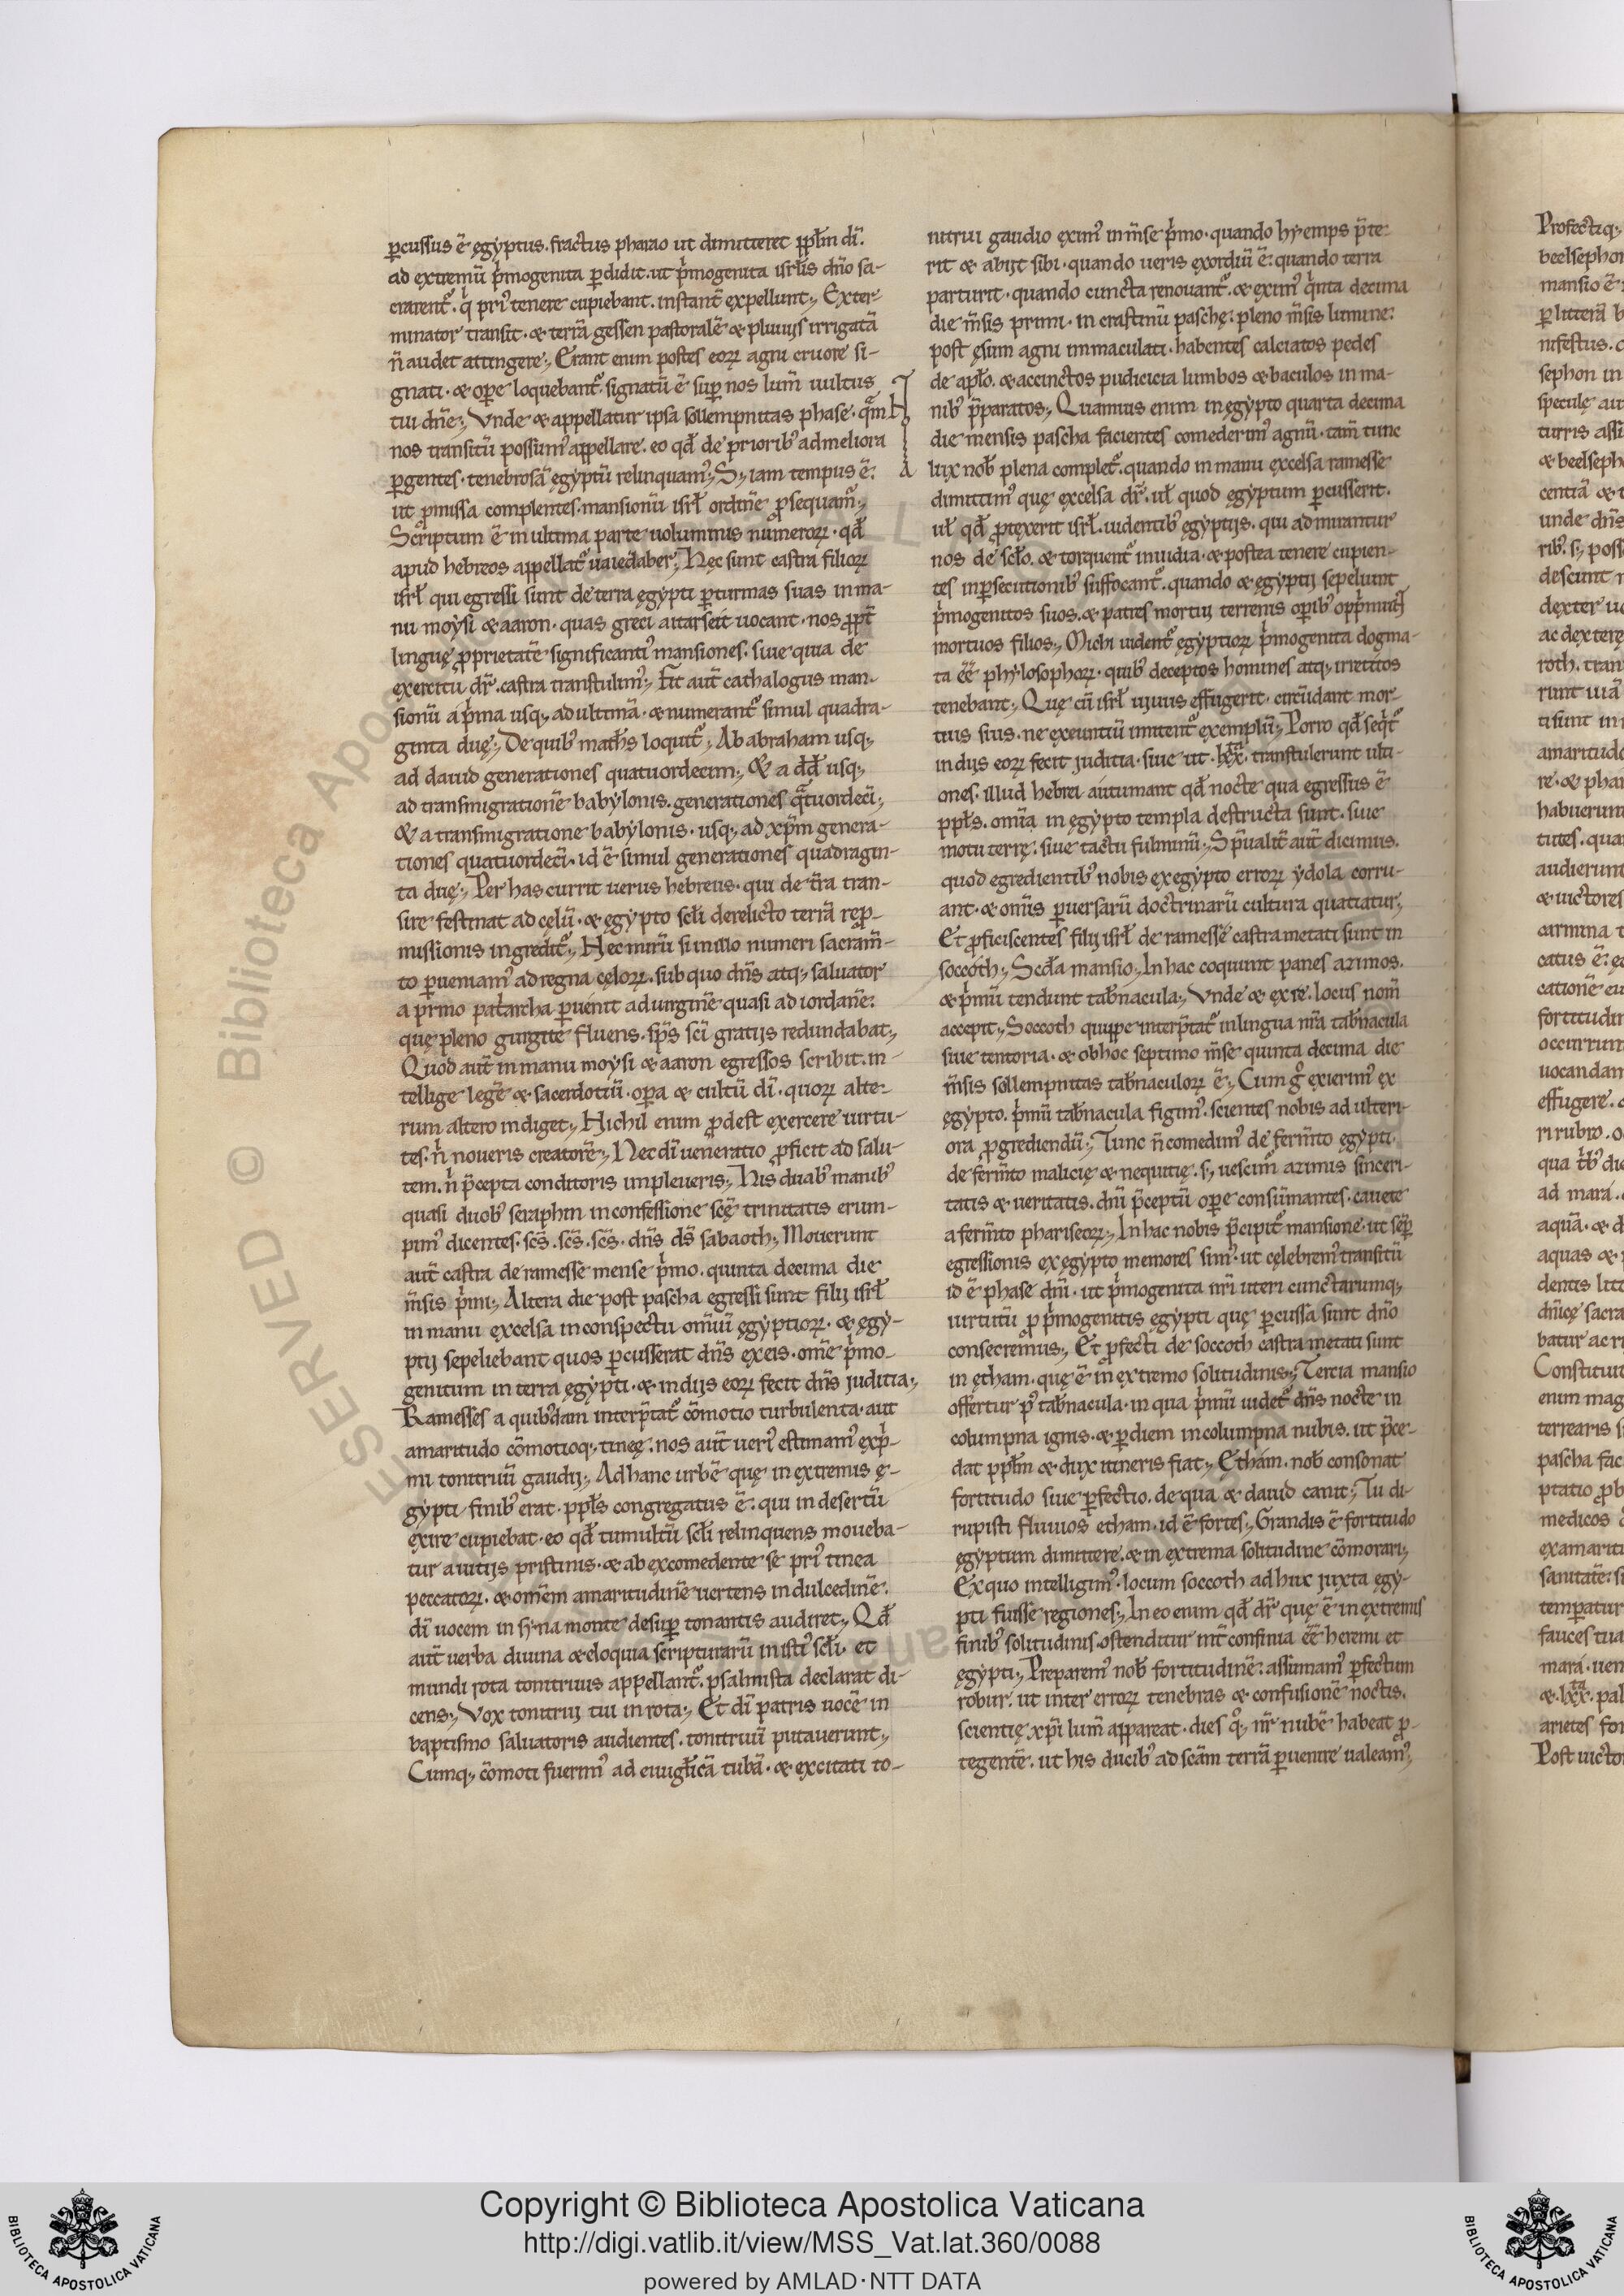 ꝑcussus ē ęgyptus. fractus pharao ut dimitteret ppl̄m dī.
ad extremū pͥmogenita ꝑdidit. ut pͥmogenita isrl̄is dn̄o sa-
crarent᷑. qͥ priꝰ tenere cupiebant. instant̄ expellunt;, Exter-
minator transit. & terrā gessen pastoralē & pluuiis irrigatā
n̄ audet attingere;, Erant enim postes eoꝝ agni cruore si-
gnati. & oꝑe loquebant᷑. signatū ē suꝑ nos lum̄ uultus
tui dn̄e;, Vnde & appellatur ipsa sollempnitas phase. qm̄
nos transitū possumꝰ appellare. eo qđ de prioribꝰ ad meliora
ꝑgentes. tenebrosā ęgyptū relinquamꝰ;, S; iam tempus ē.
ut ꝓmissa complentes. mansionū isrl̄ ordinē ꝓsequam᷑;,
Scriptum ē in ultima parte uoluminis numeroꝝ. qđ
apud hebreos appellat᷑ uaiedaber;, Hęc sunt castra filioꝝ
isrl̄ qui egressi sunt de terra ęgypti ꝑ turmas suas in ma-
nu moysi & aaron. quas greci aitarseit uocant. nos ꝓpt̄
linguę ꝓprietatē significantiꝰ mansiones. siue quia de
exercitu dr̄. castra transtulimꝰ;, Fit aut̄ cathalogus man-
sionū a pͥma usq; ad ultimā. & numerant᷑ simul quadra-
ginta duę;, De quibꝰ math̄s loquit᷑;, Ab abraham usq;
ad dauid generationes quatuordecim;, & a dd̄ usq;
ad transmigrationē babylonis. generationes qᷓtuordecī;,
& a transmigratione babylonis. usq; ad xp̄m genera-
tiones quatuordecī. id ē simul generationes quadragin-
ta duę;, Per has currit uerus hebreus. qui de t̄ra tran-
sire festinat ad cęlū. & ęgypto scl̄i derelicto terrā reꝓ-
missionis ingredit᷑;, Nec mirū si in illo numeri sacram̄-
to ꝑueniamꝰ ad regna cęloꝝ. sub quo dn̄s atq; saluator
a primo patͥarcha ꝑuenit ad uirginē quasi ad iordanē.
quę pleno gurgite fluens. sp̄s sc̄i gratiis redundabat;,
Quod aut̄ in manu moysi & aaron egressos scribit. in-
tellige legē & sacerdotiū. oꝑa & cultū dī. quoꝝ alte-
rum altero indiget;, Nichil enim ꝓdest exercere uirtu-
tes. nͥ noueris creatorē;, Nec dī ueneratio ꝓficit ad salu-
tem. nͥ p̄cepta conditoris impleueris;, His duabꝰ manibꝰ
quasi duobꝰ seraphin in confessione sc̄ę trinitatis erum-
pimꝰ dicentes. sc̄s. sc̄s. sc̄s. dn̄s ds̄ sabaoth;, Mouerunt
aut̄ castra de ramesse mense pͥmo. quinta decima die
m̄sis pͥmi;, Altera die post pascha egressi sunt filii isrl̄
in manu excelsa in conspectu om̄iū ęgyptioꝝ. & ęgy-
ptii sepeliebant quos ꝑcusserat dn̄s ex eis. om̄e pͥmo-
genitum in terra ęgypti. & in diis eoꝝ fecit dn̄s iuditia;,
Ramesses a quibꝰdam interp̄tat᷑ cōmotio turbulenta. aut
amaritudo cōmotioq; tineę. nos aut̄ ueriꝰ estimamꝰ expͥ-
mi tonitruū gaudii;, Ad hanc urbē quę in extremis ę-
gypti finibꝰ erat. ppl̄s congregatus ē. qui in desertū
exire cupiebat. eo qđ tumultū scl̄i relinquens moueba-
tur a uitiis pristinis. & ab excomedente se priꝰ tinea
peccatoꝝ. & omēm amaritudinē uertens in dulcedinē.
dī uocem in syna monte desuꝑ tonantis audiret;, Qđ
aut̄ uerba diuina & eloquia scripturarū in istiꝰ scl̄i. et
mundi rota tonitruus appellant᷑. psalmista declarat di-
cens;, Vox tonitrui tui in rota;, Et dī patris uocē in
baptismo saluatoris audientes. tonitruū putauerunt;,
Cumq; cōmoti fuerimꝰ ad euugl̄icā tubā. & excitati to-
nitrui gaudio eximꝰ in m̄se pͥmo. quando hyemps p̄te-
rit & abiit sibi. quando ueris exordiū ē. quando terra
parturit. quando cuncta renouant᷑. & eximꝰ qͥnta decima
die m̄sis primi. in crastinū paschę. pleno m̄sis lumine.
post esum agni immaculati. habentes calciatos pedes
de apl̄o. & accinctos pudicicia lumbos & baculos in ma-
nibꝰ p̄paratos;, Quamuis enim in ęgypto quarta decima
die mensis pascha facientes comederimꝰ agnū. tam̄ tunc
lux nob̄ plena complet᷑. quando in manu excelsa ramesse
dimittimꝰ quę excelsa dr̄. ul̄ quod ęgyptum ꝑcusserit.
ul̄ qđ ꝓtexerit isrl̄. uidentibꝰ ęgyptiis. qui admirantur
nos de scl̄o. & torquent᷑ inuidia. & postea tenere cupien-
tes in ꝑsecutionibꝰ suffocant᷑. quando & ęgyptii sepeliunt
pͥmogenitos suos. & paties mortui terrenis oꝑibꝰ oppͥmunt
mortuos filios;, Michi uident᷑ ęgyptioꝝ pͥmogenita dogma-
ta ēē phylosophoꝝ. quibꝰ deceptos homines atq; irretitos
tenebant;, Quę cū isrl̄ uiuus effugerit. circūdant mor-
tuis suis. ne exeuntiū imitent᷑ exemplū;, Porro qđ seqͥt᷑
in diis eoꝝ fecit iuditia. siue ut .lxx^ta. transtulerunt ulti-
ones. illud hebrei autumant qđ nocte qua egressus ē
ppl̄s. omīa in ęgypto templa destructa sunt. siue
motu terrę. siue tactu fulminū;, Sp̄ualit̄ aut̄ dicimus.
quod egredientibꝰ nobis ex egypto erroꝝ ydola corru-
ant. & omīs ꝑuersarū doctrinarū cultura quatiatur;,
Et ꝓficiscentes filii isrl̄ de ramesse castra metati sunt in
soccoth;, Scd̄a mansio;, In hac coquunt panes azimos.
& pͥmū tendunt tab̄nacula;, Vnde & ex re. locus nom̄
accepit;, Soccoth quippe interp̄tat᷑ in lingua nr̄a tab̄nacula
siue tentoria. & ob hoc septimo m̄se quinta decima die
m̄sis sollempnitas tab̄naculoꝝ ē;, Cum gͦ exierimꝰ ex
ęgypto. pͥmū tab̄nacula figimꝰ. scientes nobis ad ulteri-
ora ꝓgrediendū;, Tunc n̄ comedimꝰ de ferm̄to ęgypti.
de ferm̄to malicię & nequitię. s; uescim᷑ azimis sinceri-
tatis & ueritatis. dn̄i p̄ceptū oꝑe consūmantes. cauete
a ferm̄to phariseoꝝ;, In hac nobis p̄cipit᷑ mansione. ut semꝑ
egressionis ex ęgypto memores simꝰ. ut cęlebremꝰ transitū
id ē phase dn̄i. ut pͥmogenita nr̄i uteri cunctarumq;
uirtutū ꝓ pͥmogenitis ęgypti quę ꝑcussa sunt dn̄o
consecremus;, Et ꝓfecti de soccoth castra metati sunt
in ętham. quę ē in extremo solitudinis;, Tercia mansio
offertur pꝰ tab̄nacula. in qua pͥmū uidet᷑ dn̄s nocte in
columpna ignis. & ꝑ diem in columpna nubis. ut p̄ce-
dat ppl̄m & dux itineris fiat;, Etham. nob̄ consonat
fortitudo siue ꝑfectio. de qua & dauid canit;, Tu di-
rupisti fluuios etham. id ē fortes;, Grandis ē fortitudo
ęgyptum dimittere. & in extrema solitudine cōmorari;,
Ex quo intelligimꝰ. locum soccoth adhuc iuxta ęgy-
pti fuisse regiones;, In eo enim qđ dr̄ quę ē in extremis
finibꝰ solitudinis. ostenditur int̄ confinia ēē heremi et
ęgypti;, Preparemꝰ nob̄ fortitudinē. assumamꝰ ꝑfectum
robur. ut inter erroꝝ tenebras & confusionē noctis.
scientię xp̄i lum̄ appareat. dies qͦ; nr̄ nubē habeat ꝓ-
tegentē. ut his ducibꝰ ad scām terrā ꝑuenire ualeamꝰ;,
Copyright © Biblioteca Apostolica Vaticana
http://digi.vatlib.it/view/MSS_Vat.lat.360/0088
powered by AMLAD·NTT DATA
BIBLIOTECA APOSTOLICA VATICANA
BIBLIOTECA APOSTOLICA VATICANA